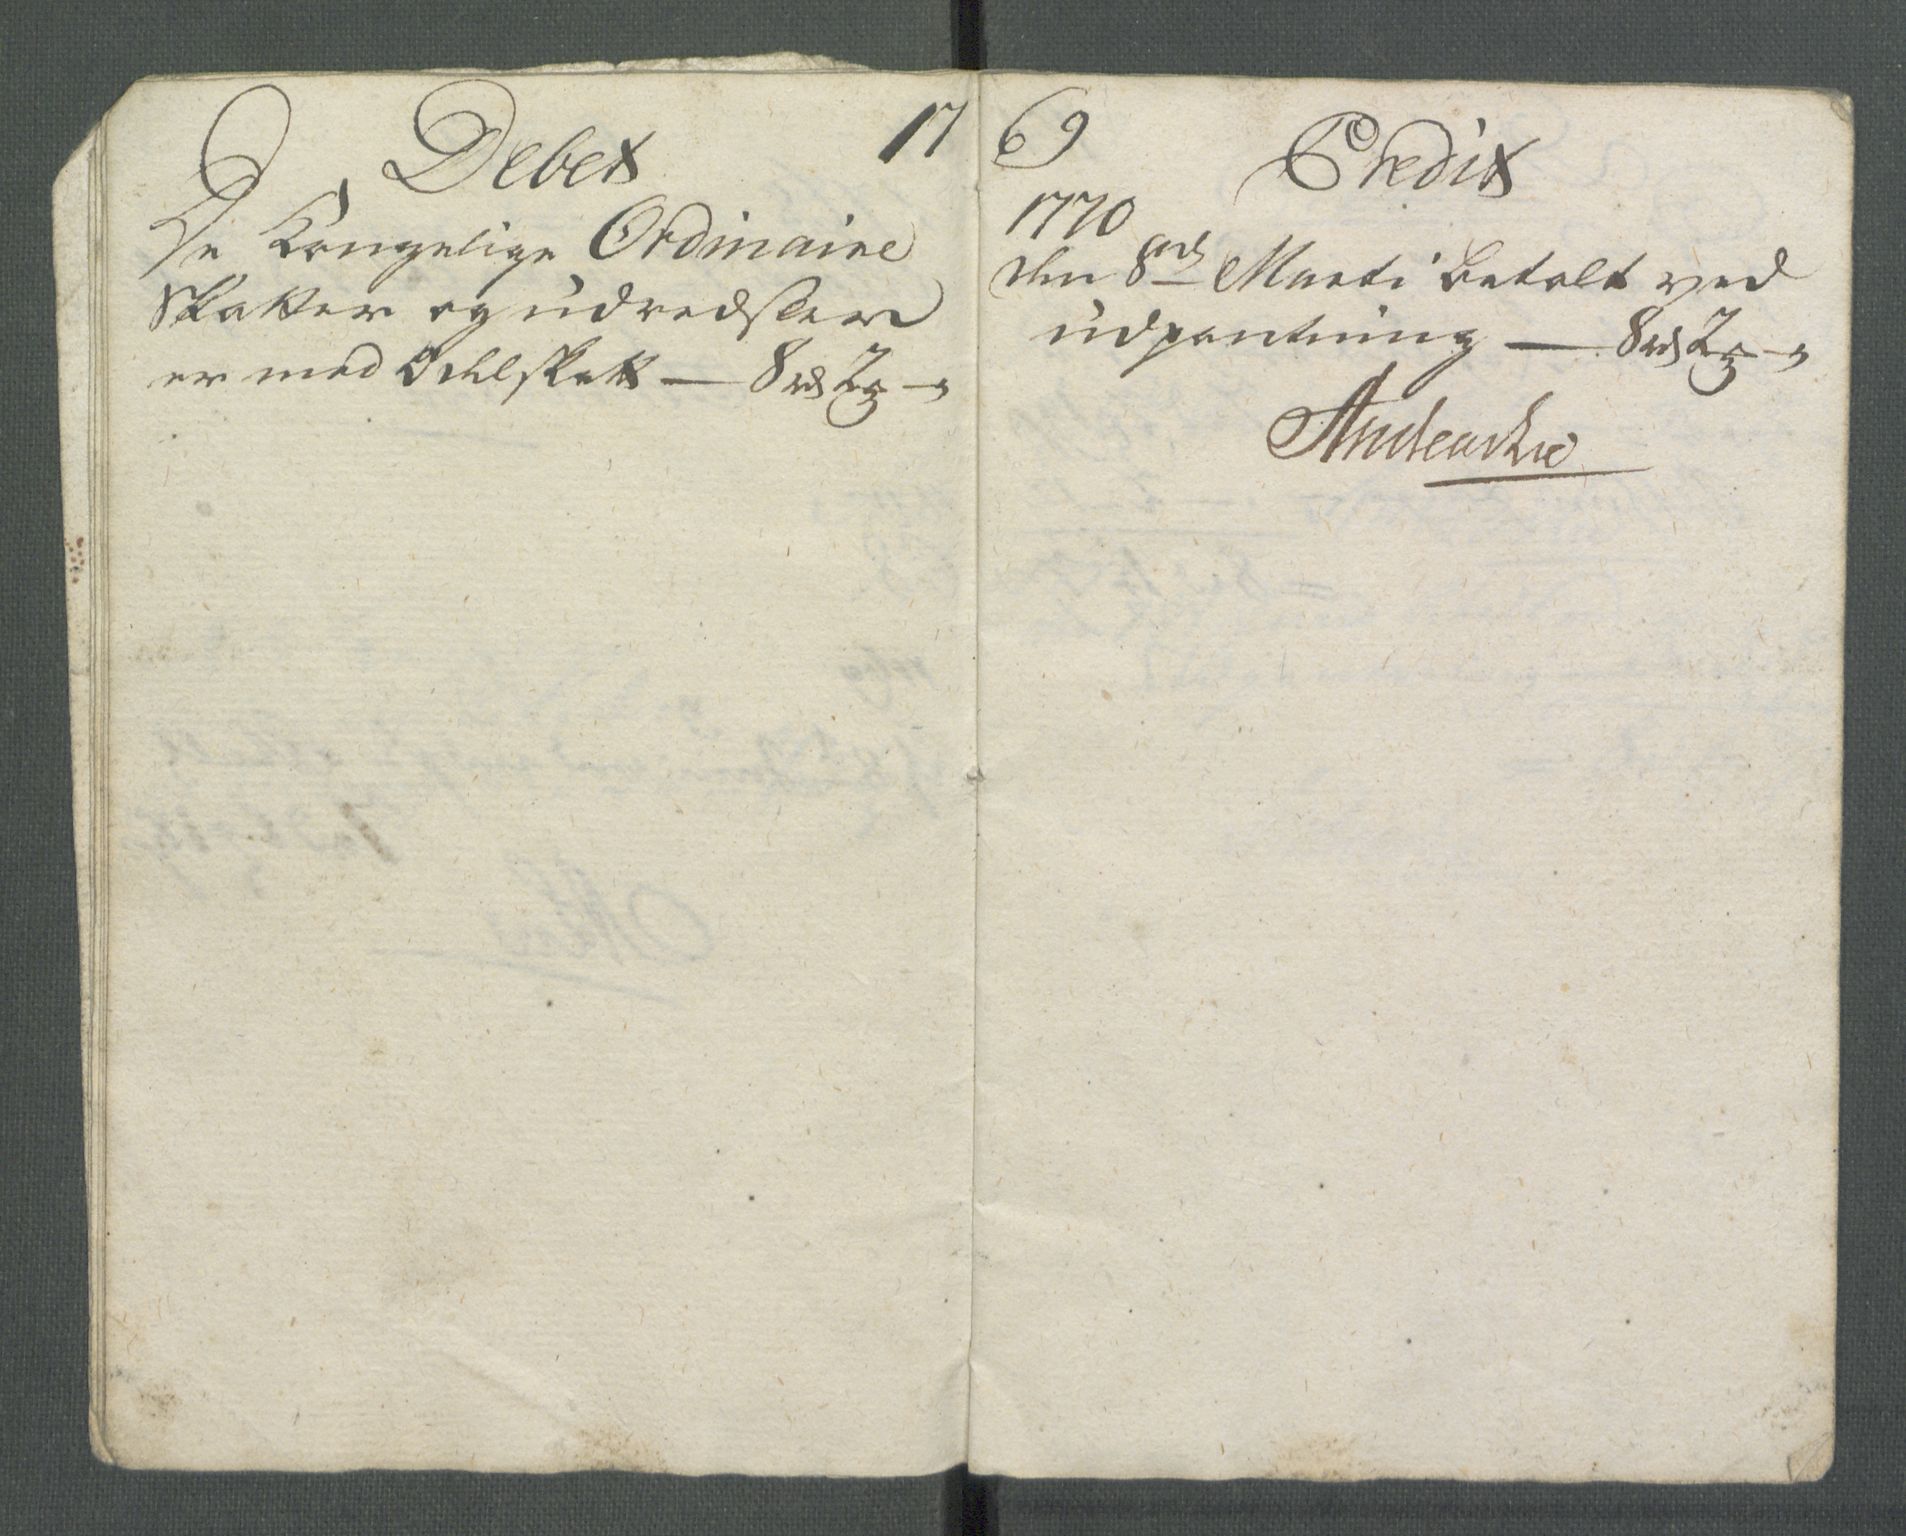 Debet 17
De Kongelige Ordinaire
Skatter og udredsler
er med Odelskatt — 8 rd 2 ß
69 Credit
1770
den 8de Marti betalt ved
udpantning — 8 rd 2 ß